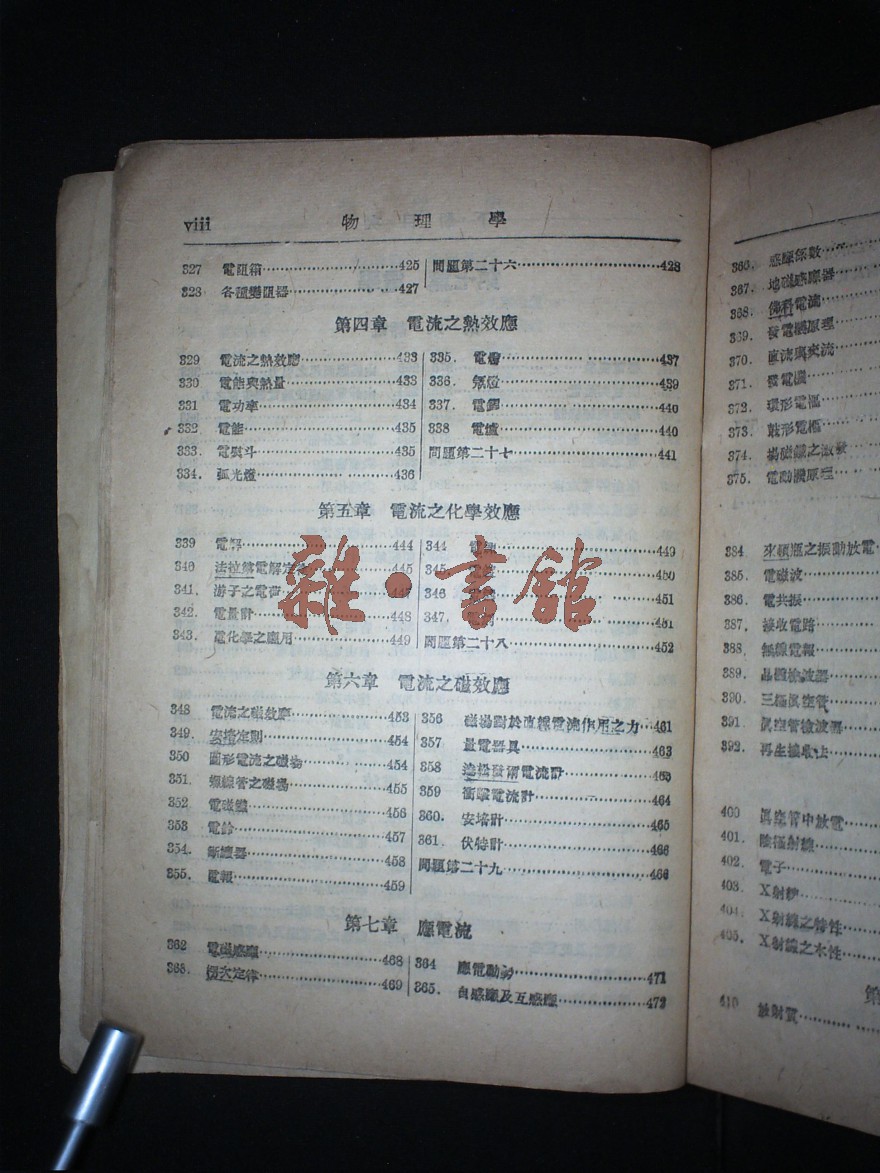 viii 物理學
327 電阻箱 425
328 各種變阻器 427
問題第二十六 428
第四章 電流之熱效應
329 電流之熱效應 433
330 電能與熱量 433
331 電功率 434
332 電能 435
333. 電熨斗 435
334. 弧光燈 436
335. 437
336. 439
337. 440
338 電爐 440
問題第二十七 441
第五章 電流之化學效應
339 電解 444
340 法拉第電解定 445
341. 游子之電荷
342. 電量計 448
343. 電化學之應用 449
344 449
345 450
346 451
347. 451
問題第二十八 452
雜·書館
第六章 電流之磁效應
348 電流之磁效應 453
349. 安培定則 454
350 圓形電流之磁場 454
351. 螺線管之磁場 455
352. 電磁鐵 456
353 電鈴 457
354. 斷續器 458
355. 電報 459
356 磁場對於直線電流作用之力 461
357 量電器具 463
358 達松發爾電流計 463
359 衝擊電流計 464
360. 安培計 465
361. 伏特計 466
問題第二十九 466
第七章 應電流
362 電磁感應 468
363. 楞次定律 469
364 應電動勢 471
365. 自感應及互感應 472
366. 感應係數
367. 地磁感應器
368. 佛科電流
369. 發電機原理
370. 直流與交流
371. 發電機
372. 環形電樞
373. 鼓形電樞
374. 場磁鐵之激發
375. 電動機原理
384 來頓瓶之振動放電
385. 電磁波
386. 電共振
387. 接收電路
388. 無線電報
389. 晶體檢波器
390. 三極真空管
391. 真空管檢波器
392. 再生接收法
400 眞空管中放電
401. 陰極射線
402. 電子
403. X射線
404. X射線之特性
405. X射線之本性
第
410 放射質